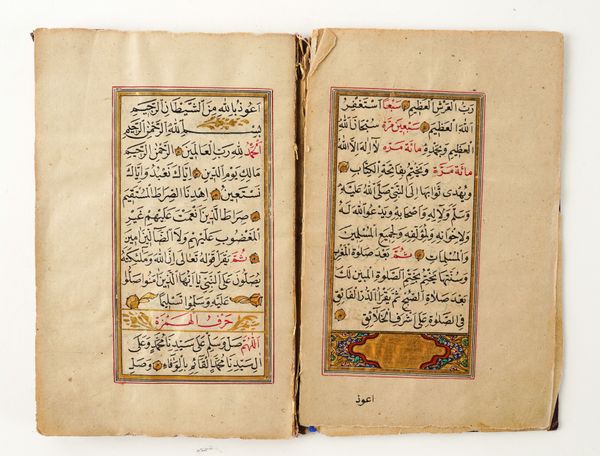 رَبَّ الْعَرْشِ الْعَظِيمِ سَبْعًا اَسْتَغْفِرُ
اللهَ الْعَظِيمَ سَبْعِينَ مَرَّةً سُبْحَانَ اللهِ
الْعَظِيمِ وَبِحَمْدِهِ مِائَةَ مَرَّةٍ لَا اِلٰهَ اِلَّا اللهُ
مِائَةَ مَرَّةٍ وَيَخْتِمُ بِفَاتِحَةِ الْكِتَابِ
وَيُهْدِى ثَوَابَهَا اِلَى النَّبِىِّ صَلَّى اللهُ عَلَيْهِ
وَسَلَّمَ وَلِاٰلِهِ وَاَصْحَابِهِ وَيَدْعُو اللهَ لَهُ
وَلِاِخْوَانِهِ وَلِمُؤَلِّفِهِ وَلِجَمِيعِ الْمُسْلِمِينَ
وَالْمُسْلِمَاتِ ثُمَّ بَعْدَ صَلٰوةِ الْمَغْرِبِ
وَسُنَّتِهَا يَخْتِمُ بِخَتْمِ الصَّلٰوةِ الْمُبِينِ لَكَ
بَعْدَ صَلَاةِ الصُّبْحِ ثُمَّ يَقْرَأُ الدُّرَّ الْفَائِقَ
فِى الصَّلٰوةِ عَلٰى اَشْرَفِ الْخَلَائِقِ
اعوذ
اَعُوذُ بِاللهِ مِنَ الشَّيْطَانِ الرَّجِيمِ
بِسْمِ اللهِ الرَّحْمٰنِ الرَّحِيمِ
اَلْحَمْدُ لِلّٰهِ رَبِّ الْعَالَمِينَ الرَّحْمٰنِ الرَّحِيمِ
مَالِكِ يَوْمِ الدِّينِ اِيَّاكَ نَعْبُدُ وَاِيَّاكَ
نَسْتَعِينُ اِهْدِنَا الصِّرَاطَ الْمُسْتَقِيمَ
صِرَاطَ الَّذِينَ اَنْعَمْتَ عَلَيْهِمْ غَيْرِ
الْمَغْضُوبِ عَلَيْهِمْ وَلَا الضَّالِّينَ اٰمِينَ
ثُمَّ يَقْرَأُ قَوْلَهُ تَعَالٰى اِنَّ اللهَ وَمَلٰئِكَتَهُ
يُصَلُّونَ عَلَى النَّبِىِّ يَا اَيُّهَا الَّذِينَ اٰمَنُوا صَلُّوا
عَلَيْهِ وَسَلِّمُوا تَسْلِيمًا
حَرْفُ الْهَمْزَةِ
اَللّٰهُمَّ صَلِّ وَسَلِّمْ عَلٰى سَيِّدِنَا مُحَمَّدٍ وَعَلٰى
اٰلِ سَيِّدِنَا مُحَمَّدٍ الْقَائِمِ بِالْوَفَاءِ وَصَلِّ